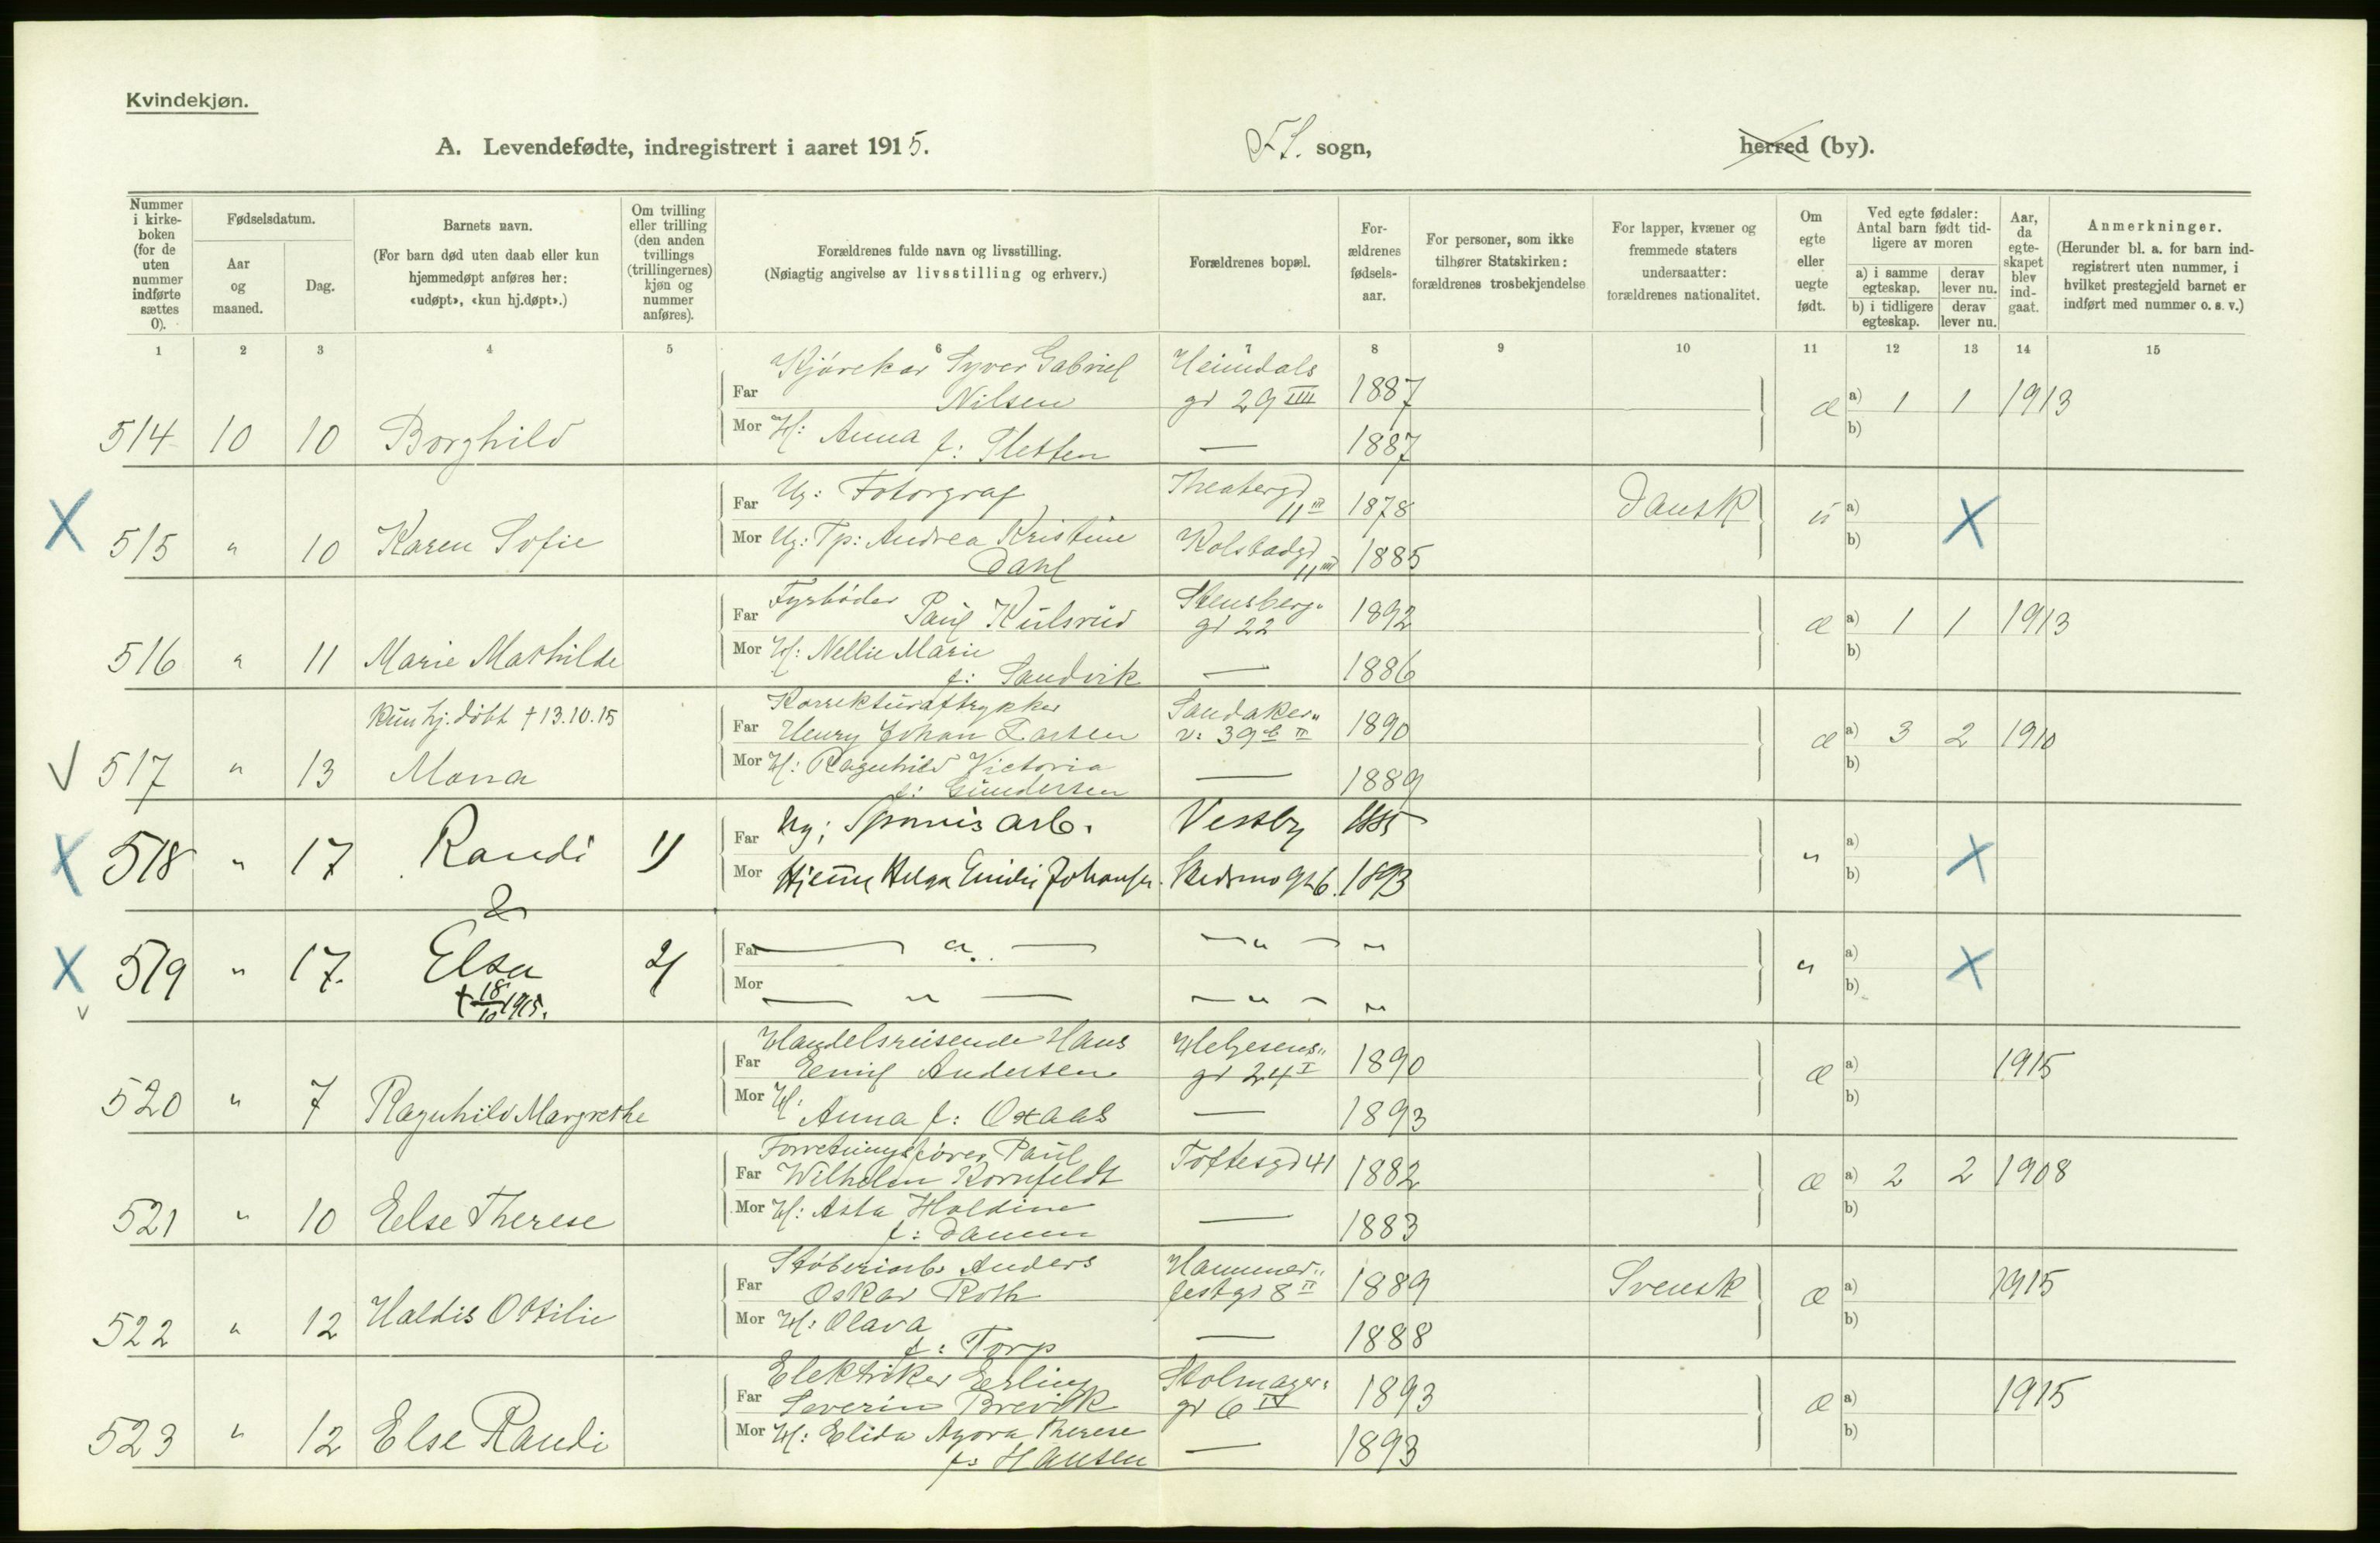 Kvindekjøn.
A. Levendefødte, indregistrert i aaret 1915.
F S. sogn,
herred (by).
Nummer i kirke-boken (for de uten nummer indførte sættes 0).
Fødselsdatum.
Aar og maaned.
Dag.
Barnets navn.
(For barn død uten daab eller kun hjemmedøpt anføres her: «udøpt», «kun hj.døpt».)
Om tvilling eller trilling (den anden tvillings (trillingernes) kjøn og nummer anføres).
Forældrenes fulde navn og livsstilling.
(Nøiagtig angivelse av livsstilling og erhverv.)
Forældrenes bopæl.
For-ældrenes fødsels-aar.
For personer, som ikke tilhører Statskirken: forældrenes trosbekjendelse
For lapper, kvæner og fremmede staters undersaatter: forældrenes nationalitet.
Om egte eller uegte født.
Ved egte fødsler: Antal barn født tid-ligere av moren
a) i samme egteskap.
derav lever nu.
b) i tidligere egteskap.
derav lever nu.
Aar, da egte-skapet blev ind-gaat.
Anmerkninger.
(Herunder bl. a. for barn ind-registrert uten nummer, i hvilket prestegjeld barnet er indført med nummer o. s. v.)
1 2 3 4 5 6 7 8 9 10 11 12 13 14 15
Kjørekar Syver Gabriel Heimdals
Far Nilsen gt 29 IIII 1887 æ a) 1 1 1913
514 10 10 Borghild Mor H: Anna f: Sletten — 1887 b)
Far Ug: Fotograf Theatergt 11 III 1878 Dansk u a) X
X 515 " 10 Karen Sofie Mor Ug: Tp: Andrea Kristine Dahl Kolstadgt 11 III 1885 b)
Far Fyrbøder Paul Kulsrud Stensberg" gt 22 1892 æ a) 1 1 1913
516 " 11 Marie Mathilde Mor H: Nellie Marie f: Sandvik — 1886 b)
Kun hj. døbt † 13.10.15
Far Korrekturaftrykker Henry Johan Larsen Sandaker" v: 39 b II 1890 æ a) 3 2 1910
V 517 " 13 Mona Mor H: Ragnhild Victoria f: Gundersen — 1889 b)
X 518 " 17 Randi 1) Far Ug: arb. Vestby 1885 " a) X
Mor Hjemme Helga Emilie Johansen. Skedsmogt 6. 1893 b)
&
X 519 " 17. Elsa 2) Far — " — — " — " " a) X
V † 18/10 1915. Mor — " — — " — " b)
Far Handelsreisende Hans Emil Andersen Helgesens" gt 24 I 1890 æ a) 1915
520 " 7 Ragnhild Margrethe Mor H: Anna f: Oxaas — 1893 b)
Far Forretningsfører Paul Wilhelm Kornfeldt Toftesgt 41 1882 æ a) 2 2 1908
521 " 10 Else Therese Mor H: Asta Haldine f: Damm — 1883 b)
Far Støberiarb. Anders Oskar Roth Hammer" festgt 8 II 1889 Svensk æ a) 1915
522 " 12 Haldis Ottilie Mor H: Olava f: Torp — 1888 b)
Far Elektriker Erling Severin Brevik Stolmager" gt 6 IV 1893 æ a) 1915
523 " 12 Else Randi Mor H: Elida Agora Therese f: Hansen — 1893 b)